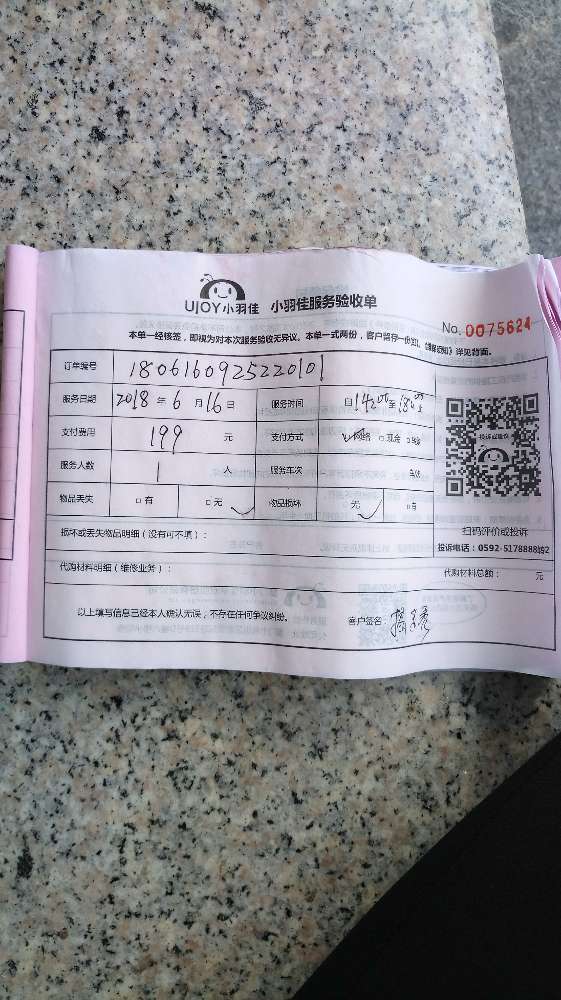 UJOY小羽佳 小羽佳服务验收单
No. 0075624
本单一经核签，即视为对本次服务验收无异议。本单一式两份，客户留存一份。《须知》详见背面。
订单编号 1806160925220101
服务日期 2018年6月16日 服务时间 自14:00至18:00
支付费用 199 元 支付方式 网络 现金
服务人数 1 人 服务车次
物品丢失 有 无 物品损坏 无 有
投诉或建议
扫码评价或投诉
投诉电话：0592-5178888转2
损坏或丢失物品明细（没有可不填）：
代购材料明细（维修业务）： 代购材料总额： 元
以上填写信息已经本人确认无误，不存在任何争议纠纷。 客户签名：